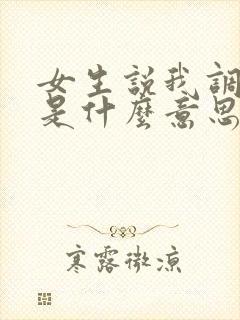 女生説我調
是什麼意思
寒露微涼